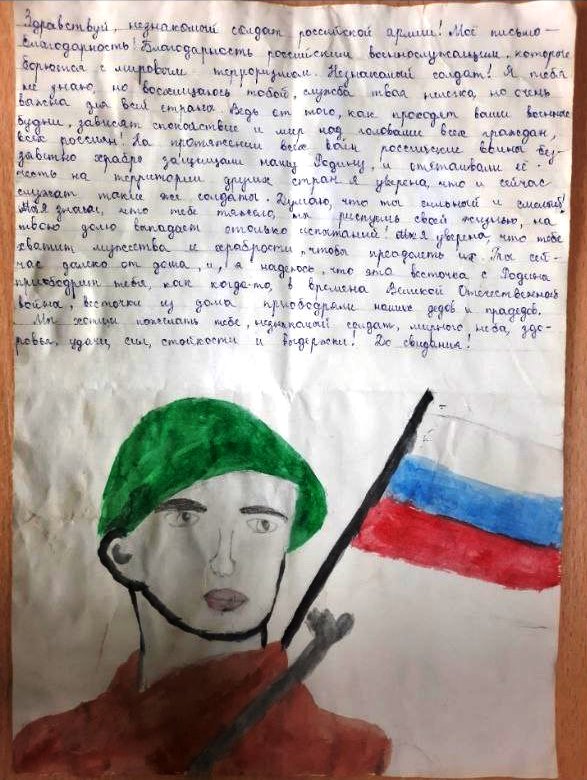 Здравствуй, незнакомый солдат российской армии! Моё письмо –
благодарность! Благодарность российским военнослужащим, которые
борются с мировым терроризмом. Незнакомый солдат! Я тебя
не знаю, но восхищаюсь тобой, служба твая нелегка, но очень
важна для всей страны. Ведь от того, как проходят ваши военные
будни, зависят спокойствие и мир над головами всех граждан,
всех россиян! На протяжении всех войн российские воины без-
заветно храбро защищали нашу Родину, и отстаивали её
честь на территории других стран. Я уверена, что и сейчас
служат такие же солдаты. Думаю, что ты сильный и смелый!
Мы знаем, что тебе тяжело, ты рискуешь своей жизнью, на
твою долю выпадает столько испытаний! Мы уверены, что тебе
хватит мужества и храбрости, чтобы преодолеть их. Ты сей-
час далеко от дома, и, я надеюсь, что эта весточка с Родины
приободрит тебя, как когда-то, в времена Великой Отечественной
войны, весточки из дома приободряли наших дедов и прадедов.
Мы хотим пожелать тебе, незнакомый солдат, мирного неба, здо-
ровья, удачи, сил, стойкости и выдержки! До свидания!